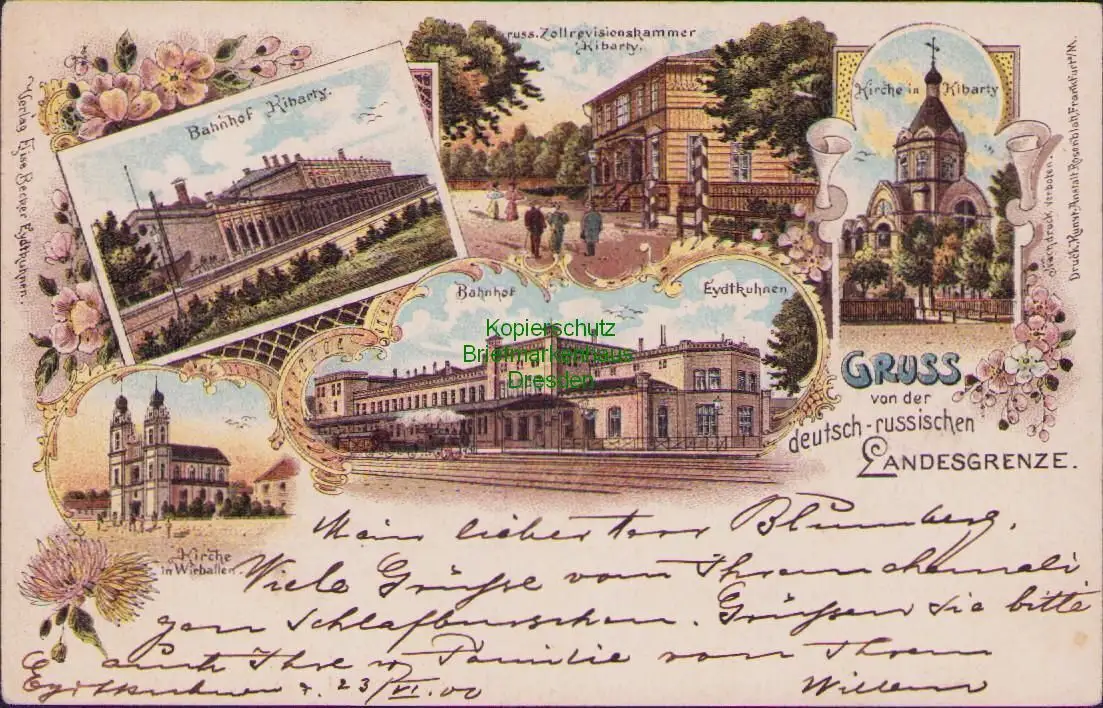 russ. Zollrevisionskammer
Kibarty.
Bahnhof Kibarty.
Kirche in Kibarty
Verlag Elise Becker Eydtkuhnen.
Nachdruck verboten.
Druck. Kunst-Anstalt Rosenblatt, Frankfurt/M.
Bahnhof Eydtkuhnen
Kopierschutz
Briefmarkenhaus
Dresden
GRUSS
von der
deutsch-russischen
LANDESGRENZE.
Kirche
in Wirballen.
Mein lieber Herr Blumberg.
Viele Grüsse vom Ihrem ehemali
gen Schlafburschen. Grüssen Sie bitte
auch Ihre Familie von Ihrem
Eydtkuhnen 23/VI.00 Willem